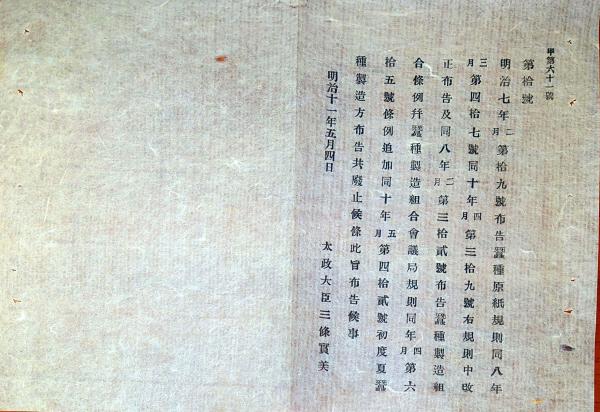 甲第六十一號
第拾號
明治七年二月第拾九號布告蠶種原紙規則同八年
三月第四拾七號同十年四月第三拾九號右規則中改
正布告及同八年二月第三拾貳號布告蠶種製造組
合條例幷蠶種製造組合會議局規則同年四月第六
拾五號條例追加同十年五月第四拾貳號初度夏蠶
種製造方布告共廢止候條此旨布告候事
明治十一年五月四日
太政大臣三條實美